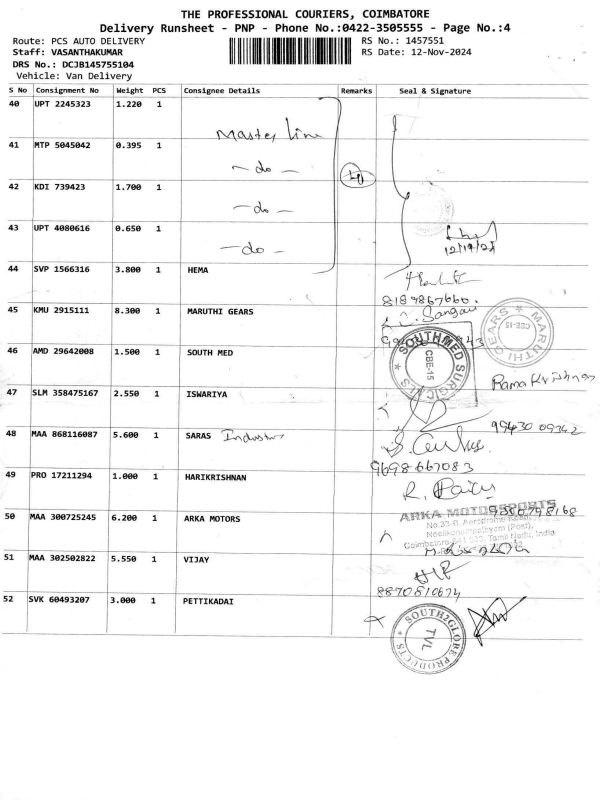 THE PROFESSIONAL COURIERS, COIMBATORE
Delivery Runsheet - PNP - Phone No.:0422-3505555 - Page No.:4
Route: PCS AUTO DELIVERY
RS No.: 1457551
Staff: VASANTHAKUMAR
RS Date: 12-Nov-2024
DRS No.: DCJB145755104
Vehicle: Van Delivery
S No Consignment No Weight PCS Consignee Details Remarks Seal & Signature
40 UPT 2245323 1.220 1
Master Line
41 MTP 5045042 0.395 1
- do -
42 KDI 739423 1.700 1
- do -
43 UPT 4080616 0.650 1
- do -
44 SVP 1566316 3.800 1 HEMA
8189867660.
45 KMU 2915111 8.300 1 MARUTHI GEARS
MARUTHI GEARS
CBE-15
46 AMD 29642008 1.500 1 SOUTH MED
SOUTHMED SURGICALS
CBE-15
Rama Krishnan
47 SLM 358475167 2.550 1 ISWARIYA
99430 09342
48 MAA 868116087 5.600 1 SARAS Industries
9698667083
49 PRO 17211294 1.000 1 HARIKRISHNAN
50 MAA 300725245 6.200 1 ARKA MOTORS
ARKA MOTORSPORTS
51 MAA 302502822 5.550 1 VIJAY
8870810674
52 SVK 60493207 3.000 1 PETTIKADAI
SOUTH2GLOBE PRODUCTS
TVL